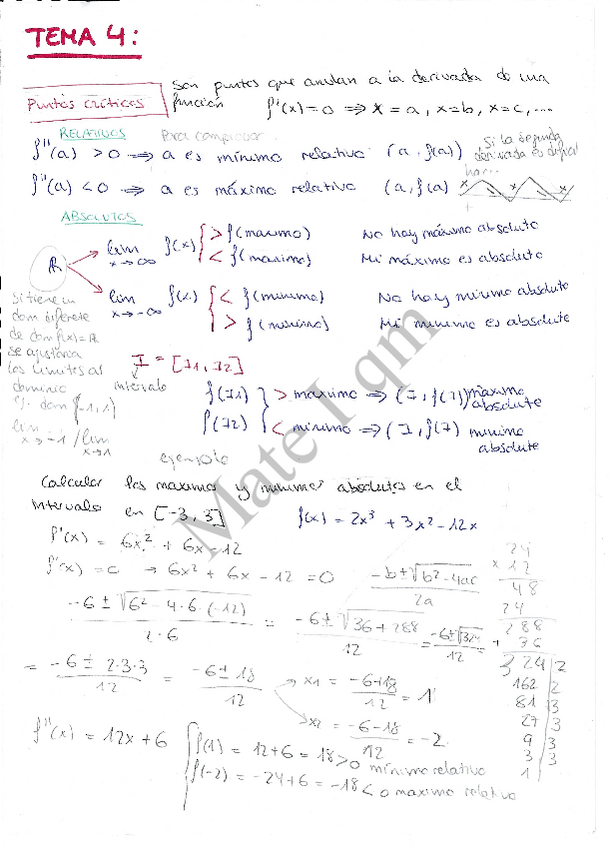 TEMA 4:
Puntos críticos
Son puntos que anulan a la derivada de una
función f'(x)=0 ⟹ x = a, x=b, x=c, ...
RELATIVOS Para comprobar
f''(a) > 0 ⟹ a es mínimo relativo (a, f(a))
f''(a) < 0 ⟹ a es máximo relativo (a, f(a)
Si la segunda
derivada es
ABSOLUTOS
ℝ
lim x→∞ f(x) { > f(maximo) No hay máximo absoluto
< f(maximo) Mi máximo es absoluto
lim x→-∞ f(x) { < f(minimo) No hay minimo absoluto
> f(minimo) Mi minimo es absoluto
Si tiene un
dom diferente
de dom f(x) = ℝ
se ajustaría
los limites al
dominio
ej. dom (-1, 1)
lim x→-1 / lim x→1
I = [I1, I2]
intervalo
f(I1) } > maximo ⟹ (I, f(I)) máximo absoluto
f(I2) } < minimo ⟹ (I, f(I) minimo absoluto
ejemplo
Calcular los maximos y minimos absolutos en el
intervalo en [-3, 3] f(x) = 2x³ + 3x² - 12x
f'(x) = 6x² + 6x - 12
f'(x) = 0 → 6x² + 6x - 12 = 0
-b ± √b² - 4ac / 2a
-6 ± √6² - 4·6·(-12) / 2·6 = -6 ± √36 + 288 / 12 = -6 ± √324 / 12
= -6 ± 2·3·3 / 12 = -6 ± 18 / 12
→ x1 = -6+18 / 12 = 1
→ x2 = -6-18 / 12 = -2
f''(x) = 12x + 6
f(1) = 12+6 = 18 > 0 mínimo relativo
f(-2) = -24+6 = -18 < 0 maximo relativo
24
× 12
48
24
288
+ 36
324 | 2
162 | 2
81 | 3
27 | 3
9 | 3
3 | 3
1
Mate I qm